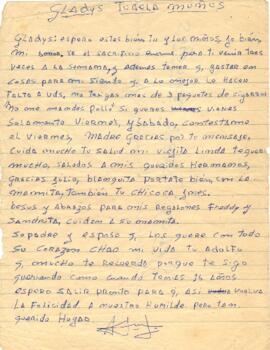 GLADYS TUDELA MUÑOS
GLADYS! espero estes bien tu y Los niños yo bien,
mi amor, se el sacrificio enorme, para ti venir tres
veces a La semana, y Ademas tener q, gastar en
cosas para mi siendo q, a Lo mejor Le hacen
falta a uds, no traigas mas de 3 paquetes de cigarros
No me mandes pollo si quieres vienes
Solamente Viernes, y Sabado, contestame
el Viernes, Madre Gracias por tu mensaje,
Cuida mucho tu Salud mi viejita Linda te quiero
mucho, saludos a mis queridos Hermanos,
Gracias Julio, blanquita portate bien, con la
mamita, tambien tu chicoca ines.
besos y Abrazos para mis Regalones Freddy y
Sandrita, cuiden a su mamita.
Su padre y esposo q, Los quere con todo
su Corazon CHAO mi Vida tu Adolfo
q, mucho te recuerda porque te sigo
queriendo como cuando tenias 16 años
espero SALIR pronto para q, Asi vuelva
La Felicidad A nuestro Humilde pero tan
querido Hogar